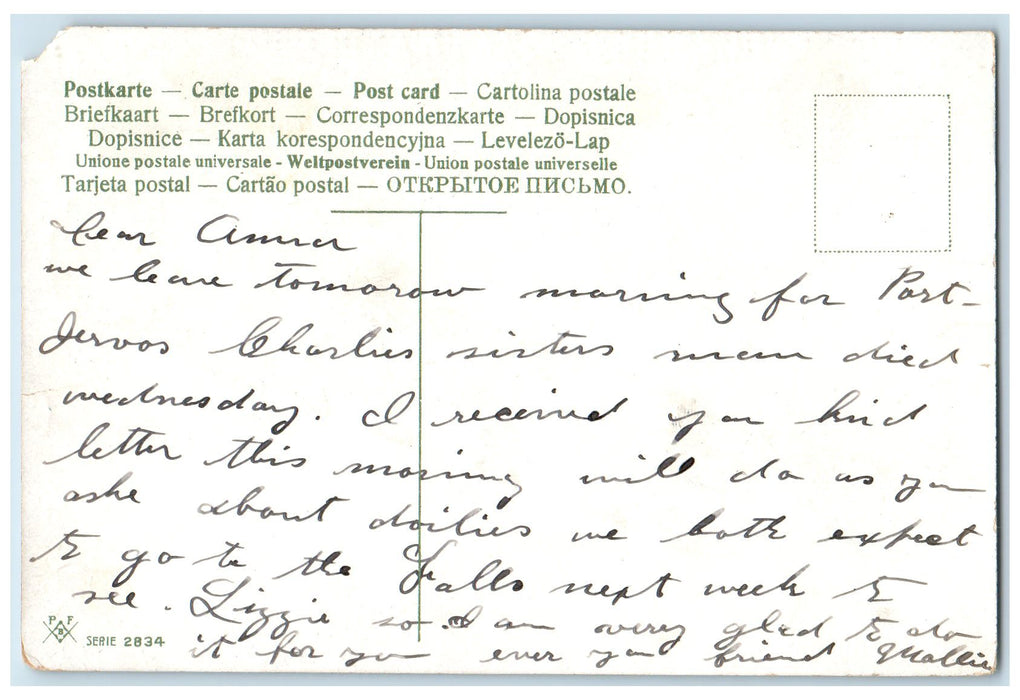 Postkarte — Carte postale — Post card — Cartolina postale
Briefkaart — Brefkort — Correspondenzkarte — Dopisnica
Dopisnice — Karta korespondencyjna — Levelező-Lap
Unione postale universale - Weltpostverein - Union postale universelle
Tarjeta postal — Cartão postal — ОТКРЫТОЕ ПИСЬМО.
Dear Anna
we leave tomorow morning for Port-
Jervos Charlies sisters man died
wednesday. I received you kind
letter this morning will do as you
aske about doilies we both expect
to go to the Falls next week to
see. Lizzie so I am very gled to do
it for you ever you friend Mollie
PBF
SERIE 2834